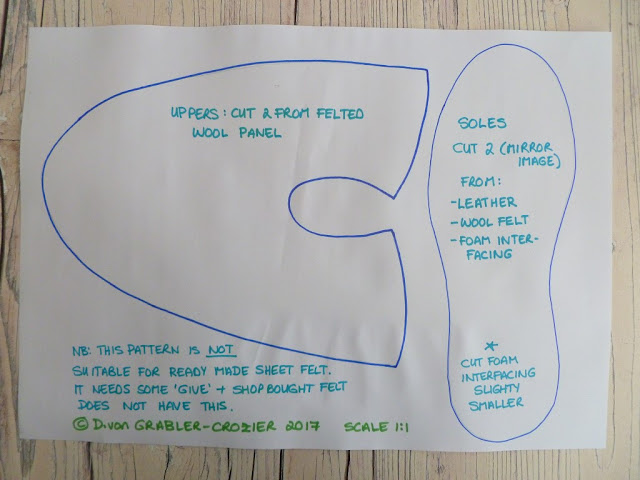 UPPERS: CUT 2 FROM FELTED
WOOL PANEL
SOLES
CUT 2 (MIRROR
IMAGE)
FROM:
-LEATHER
-WOOL FELT
-FOAM INTER-
FACING
*
CUT FOAM
INTERFACING
SLIGHTY
SMALLER
NB: THIS PATTERN IS NOT
SUITABLE FOR READY MADE SHEET FELT.
IT NEEDS SOME 'GIVE' + SHOP BOUGHT FELT
DOES NOT HAVE THIS.
© D.von GRABLER-CROZIER 2017 SCALE 1:1